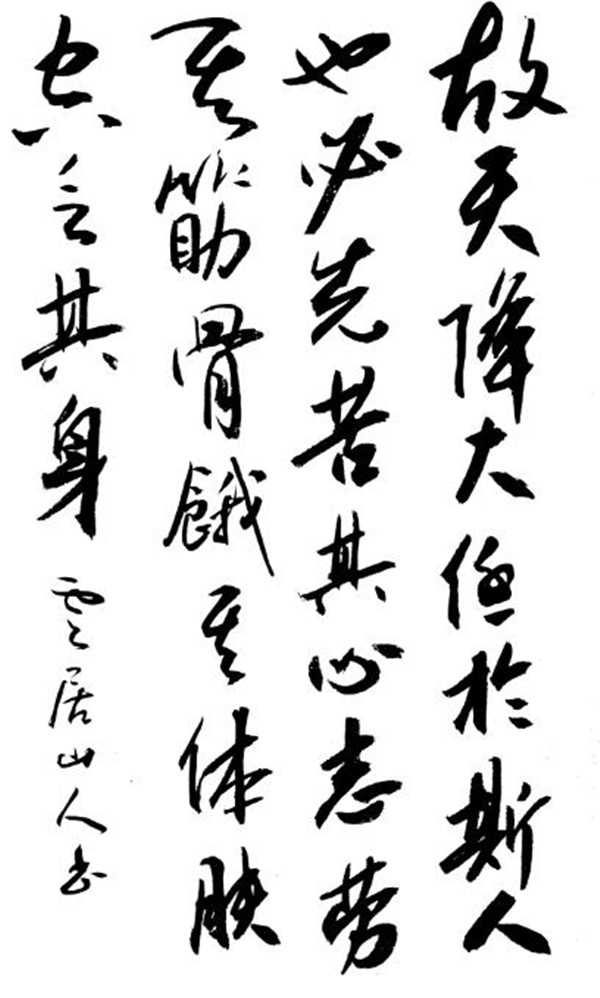 故天降大任於斯人
也必先苦其心志劳
其筋骨餓其体肤
空乏其身
雲居山人书